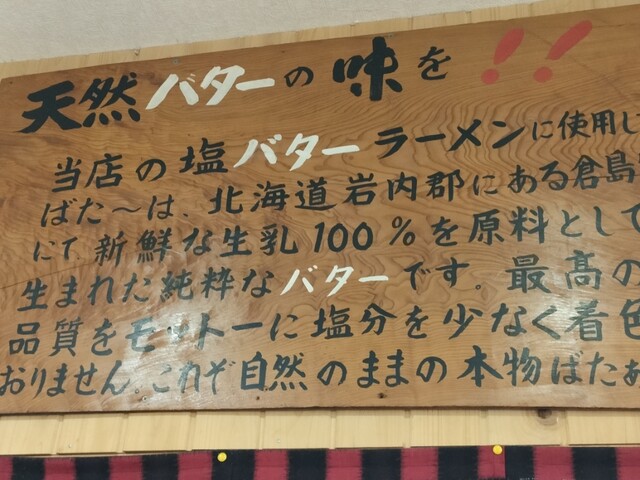 天然バターの味を!!
当店の塩バターラーメンに使用し
ばた〜は、北海道岩内郡にある倉島
にて、新鮮な生乳100%を原料として
生まれた純粋なバターです。最高の
品質をモットーに塩分を少なく着色
おりません。これぞ自然のままの本物ばたぁ